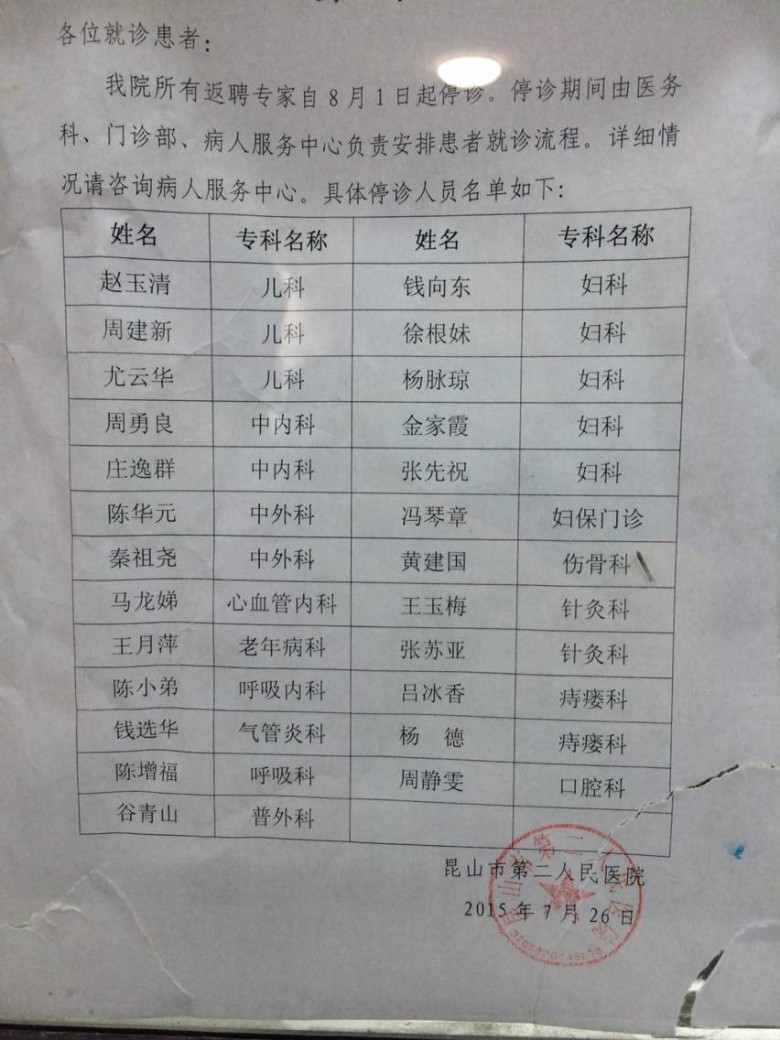 各位就诊患者：
我院所有返聘专家自8月1日起停诊。停诊期间由医务
科、门诊部、病人服务中心负责安排患者就诊流程。详细情
况请咨询病人服务中心。具体停诊人员名单如下：
姓名 专科名称 姓名 专科名称
赵玉清 儿科 钱向东 妇科
周建新 儿科 徐根妹 妇科
尤云华 儿科 杨脉琼 妇科
周勇良 中内科 金家霞 妇科
庄逸群 中内科 张先祝 妇科
陈华元 中外科 冯琴章 妇保门诊
秦祖尧 中外科 黄建国 伤骨科
马龙娣 心血管内科 王玉梅 针灸科
王月萍 老年病科 张苏亚 针灸科
陈小弟 呼吸内科 吕冰香 痔瘘科
钱选华 气管炎科 杨 德 痔瘘科
陈增福 呼吸科 周静雯 口腔科
谷青山 普外科
昆山市第二人民医院
2015年7月26日